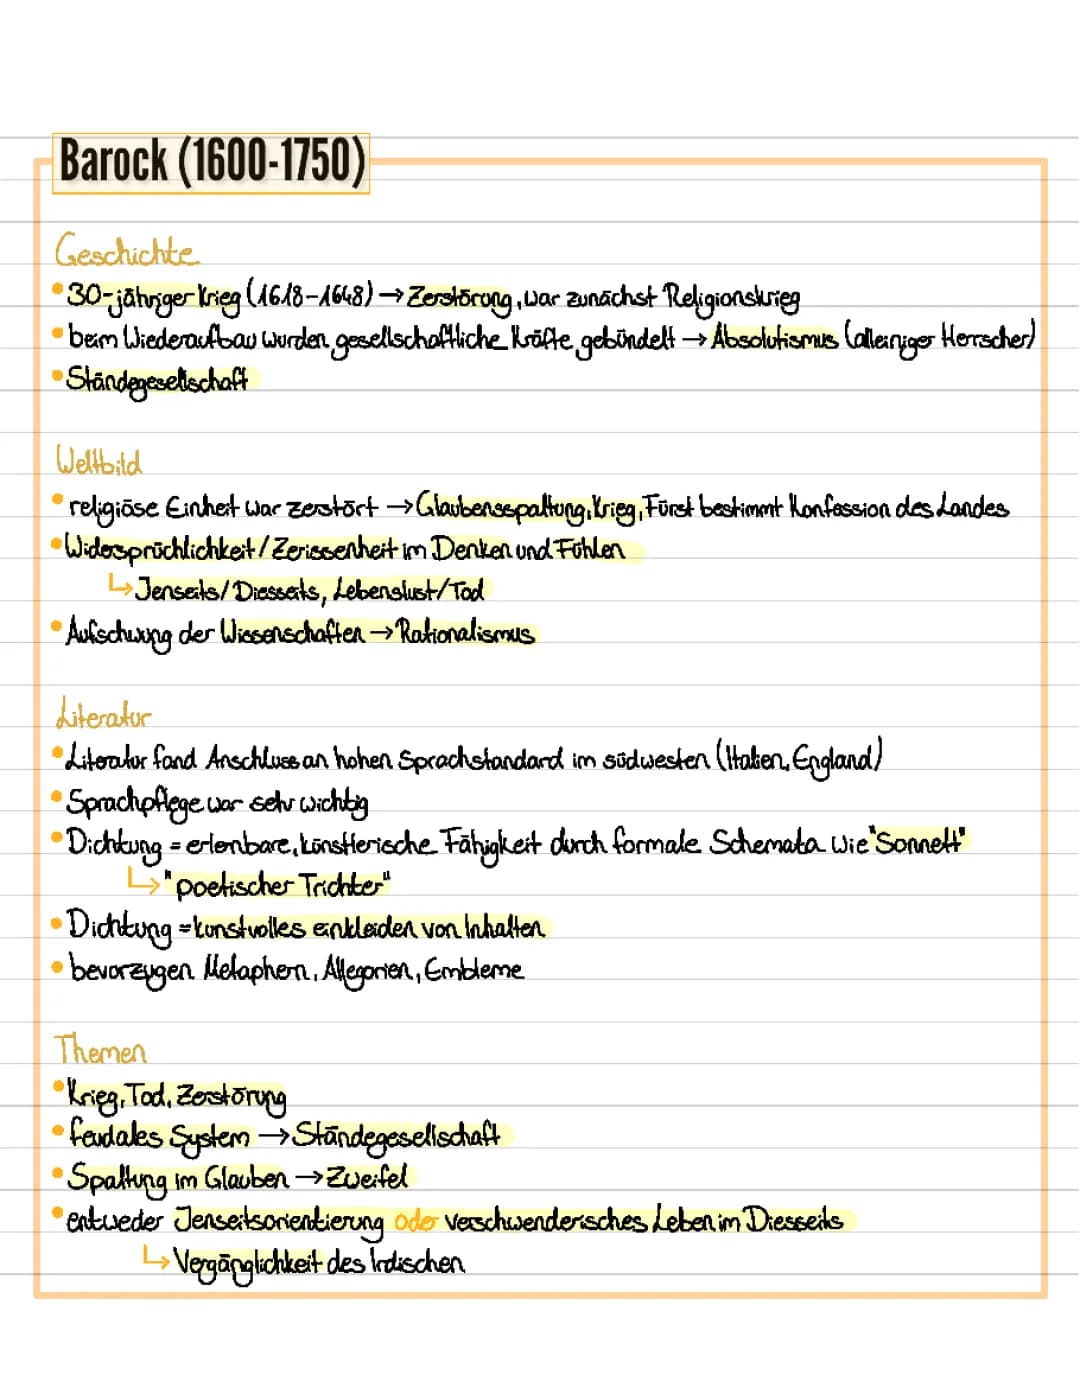 Barock (1600-1750)
Geschichte
• 30-jähriger Krieg (1618-1648) → Zerstörung, war zunächst Religionskrieg
• beim Wiederaufbau wurden gesellschaftliche Kräfte gebündelt → Absolutismus (alleiniger Herrscher)
• Ständegesellschaft
Weltbild
• religiöse Einheit war zerstört → Glaubensspaltung, Krieg, Fürst bestimmt Konfession des Landes
• Widersprüchlichkeit/Zerissenheit im Denken und Fühlen
↳ Jenseits/Diesseits, Lebenslust/Tod
• Aufschwung der Wissenschaften → Rationalismus
Literatur
• Literatur fand Anschluss an hohen Sprachstandard im südwesten (Italien, England)
• Sprachpflege war sehr wichtig
• Dichtung = erlenbare, künstlerische Fähigkeit durch formale Schemata wie "Sonnett"
↳ "poetischer Trichter"
• Dichtung = kunstvolles einkleiden von Inhalten
• bevorzugen Metaphern, Allegorien, Embleme
Themen
• Krieg, Tod, Zerstörung
• feudales System → Ständegesellschaft
• Spaltung im Glauben → Zweifel
• entweder Jenseitsorientierung oder verschwenderisches Leben im Diesseits
↳ Vergänglichkeit des Irdischen